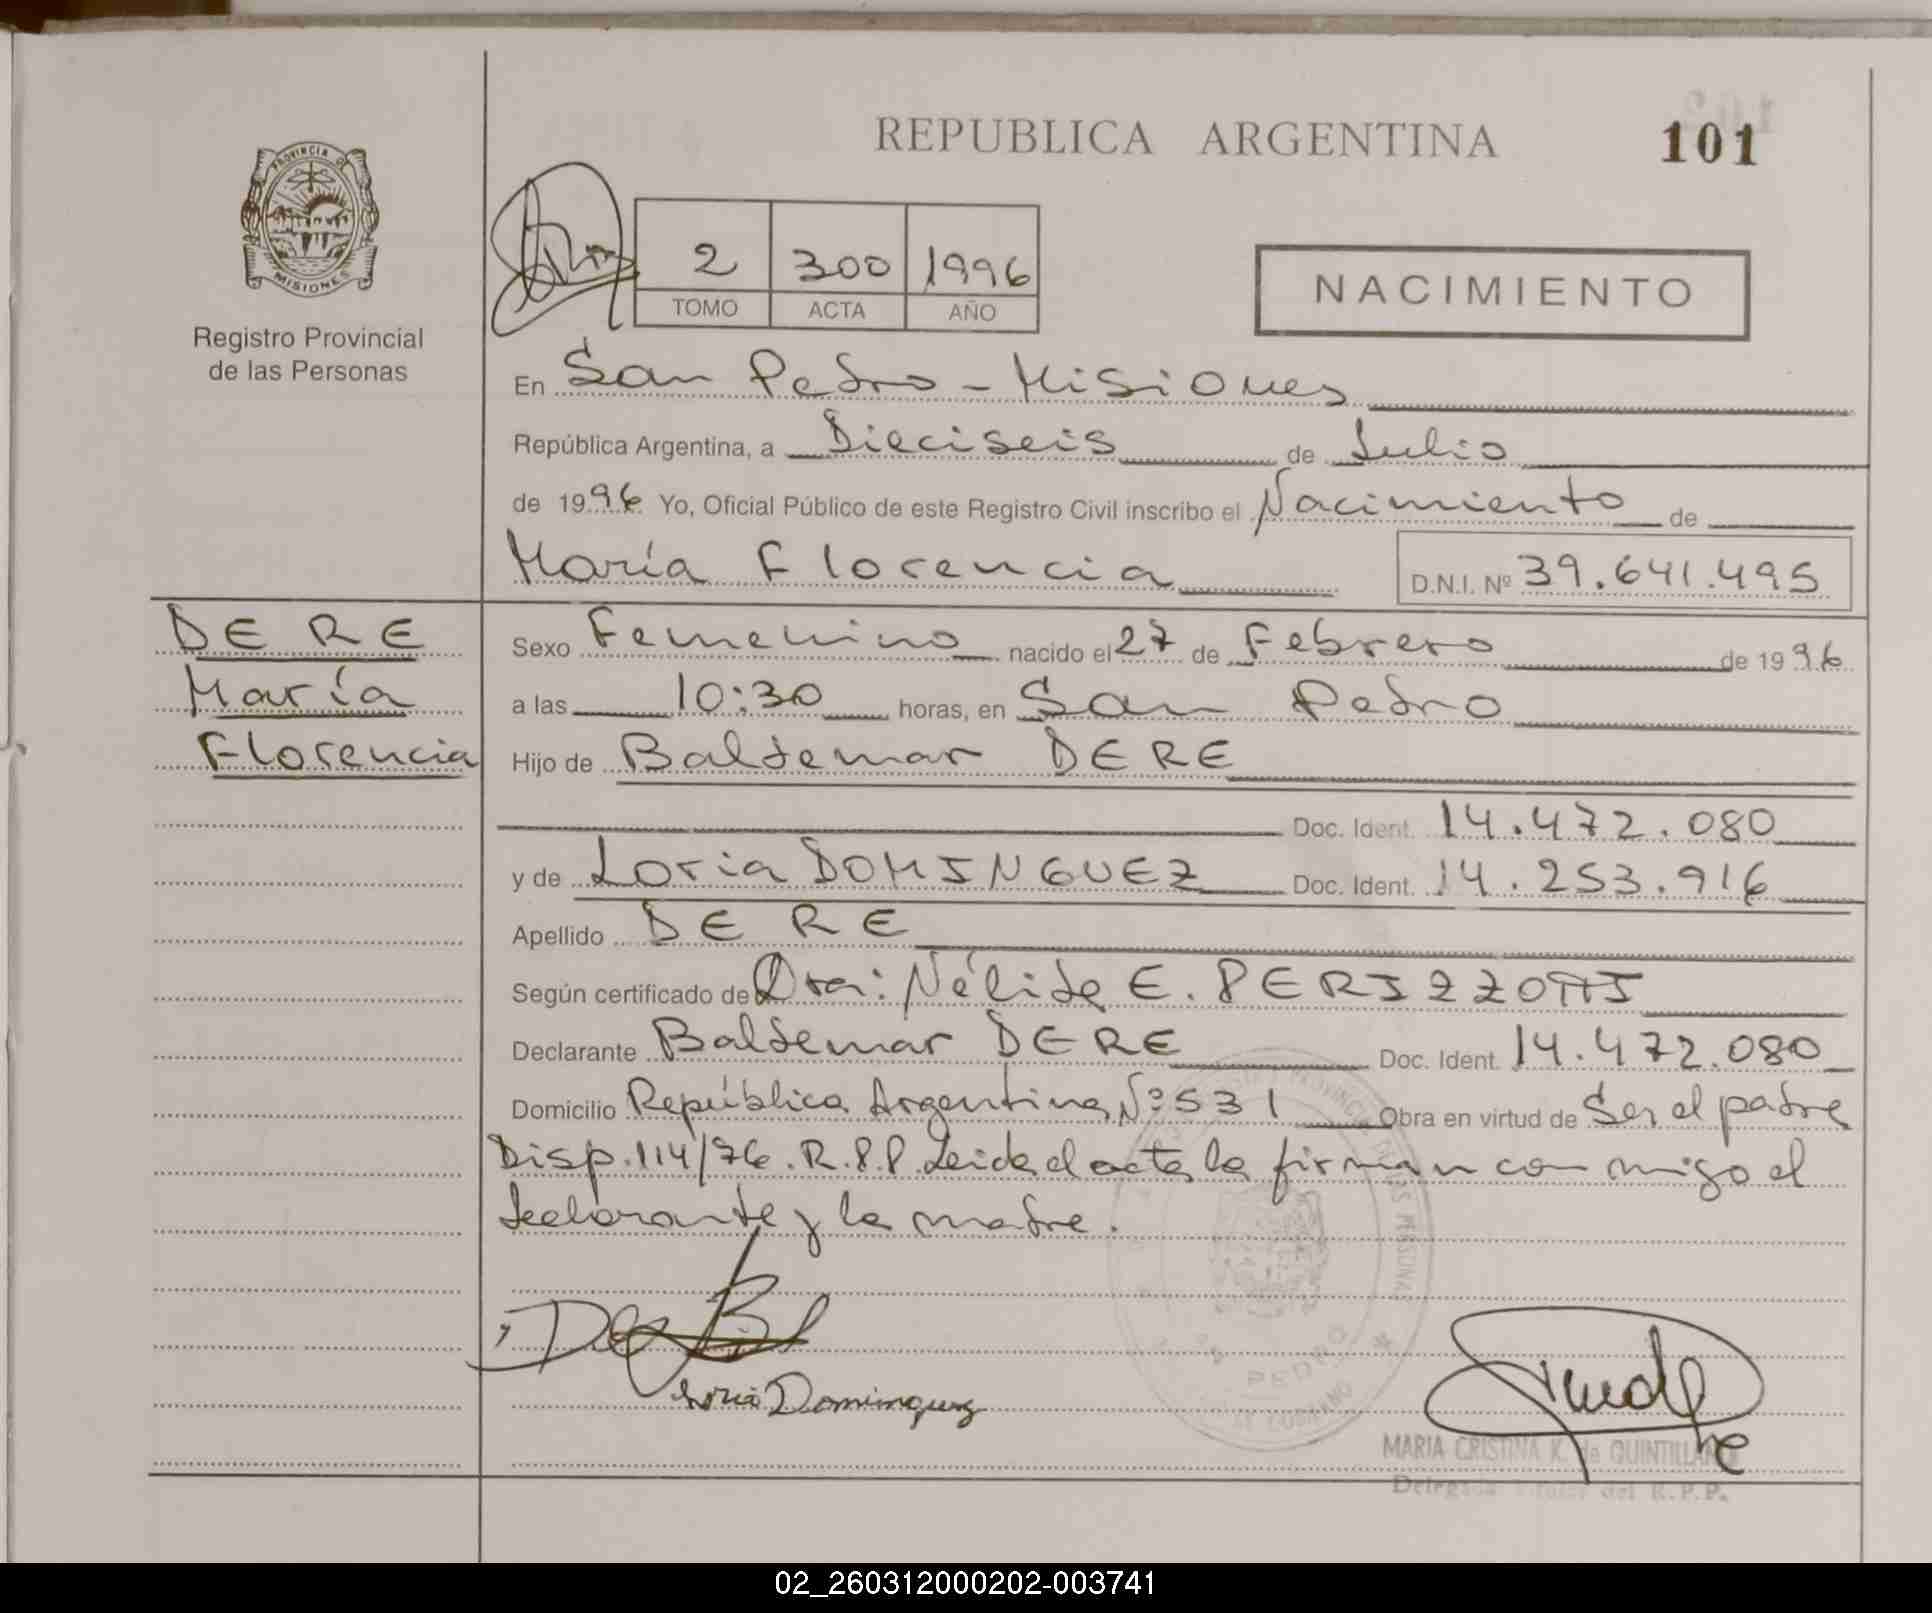 REPUBLICA ARGENTINA
101
PROVINCIA D
MISIONES
Registro Provincial
de las Personas
2 300 1996
TOMO ACTA AÑO
NACIMIENTO
En San Pedro - Misiones
República Argentina, a Dieciseis de Julio
de 1996 Yo, Oficial Público de este Registro Civil inscribo el Nacimiento de
María Florencia D.N.I. Nº 39.641.495
DE RE
María
Florencia
Sexo Femenino nacido el 27 de Febrero de 1996
a las 10:30 horas, en San Pedro
Hijo de Baldemar DE RE
Doc. Ident. 14.472.080
y de Loria DOMINGUEZ Doc. Ident. 14.253.916
Apellido DE RE
Según certificado de Dra: Nélida E. PERIZZOTTI
Declarante Baldemar DE RE Doc. Ident. 14.472.080
Domicilio República Argentina Nº 531 Obra en virtud de Ser el padre
Disp. 114/76. R.P.P. Leida el acta la firman conmigo el
declarante y la madre.
Loria Dominguez
SAN PEDRO
MARIA CRISTINA K. de
Delegada Titular del R.P.P.
02_260312000202-003741